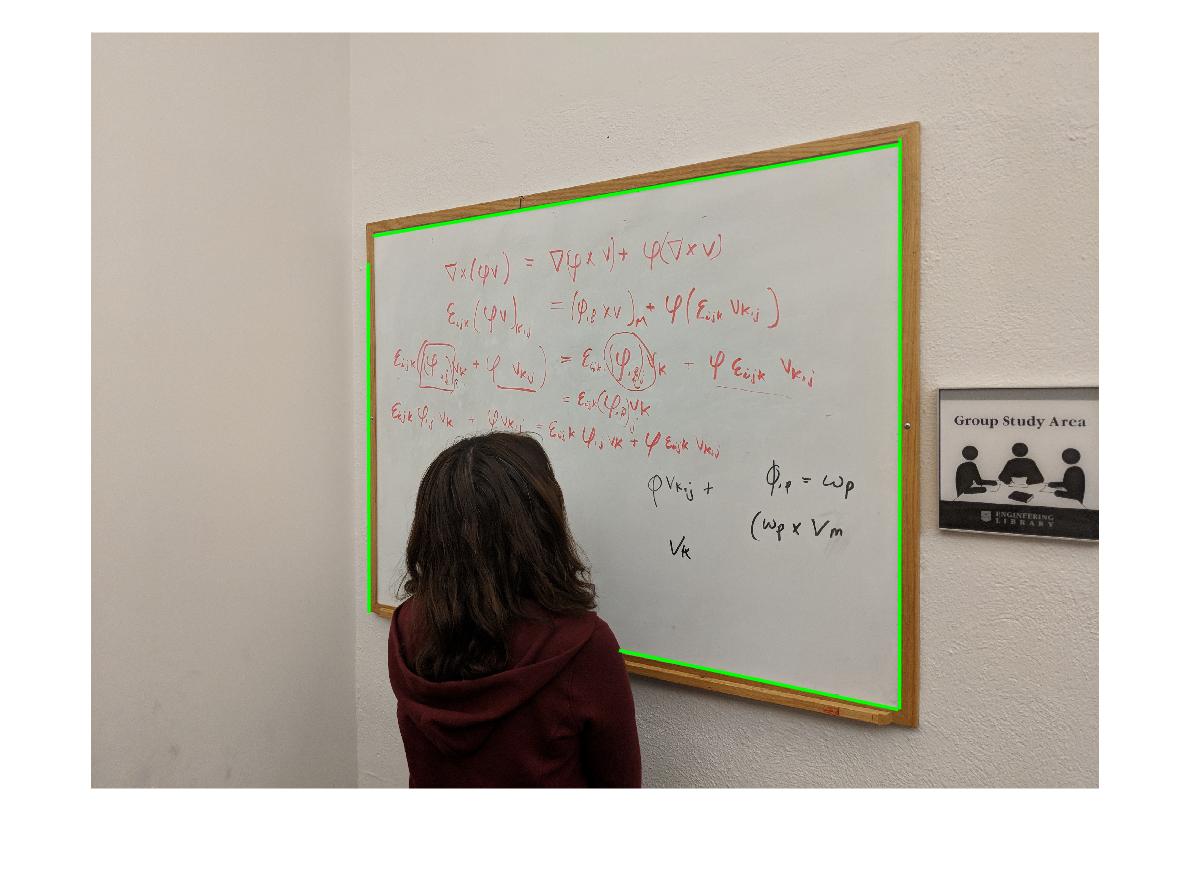 ∇×(φv) = ∇(φ×v) + φ(∇×v)
εijk(φv)k,j = (φ,ℓ ×v)M + φ(εijk vk,j)
εijk(φ,j)vk + φ vk,j) = εijk(φ,ℓ)j vk - φ εijk vk,j
= εijk(φ,ℓ)j vk
εijk φ,j vk + φ vk,j = εijk φ,j vk + φ εijk vk,j
φ vk,j +
vk
φ,p = ωp
(ωp × Vm
Group Study Area
ENGINEERING
LIBRARY